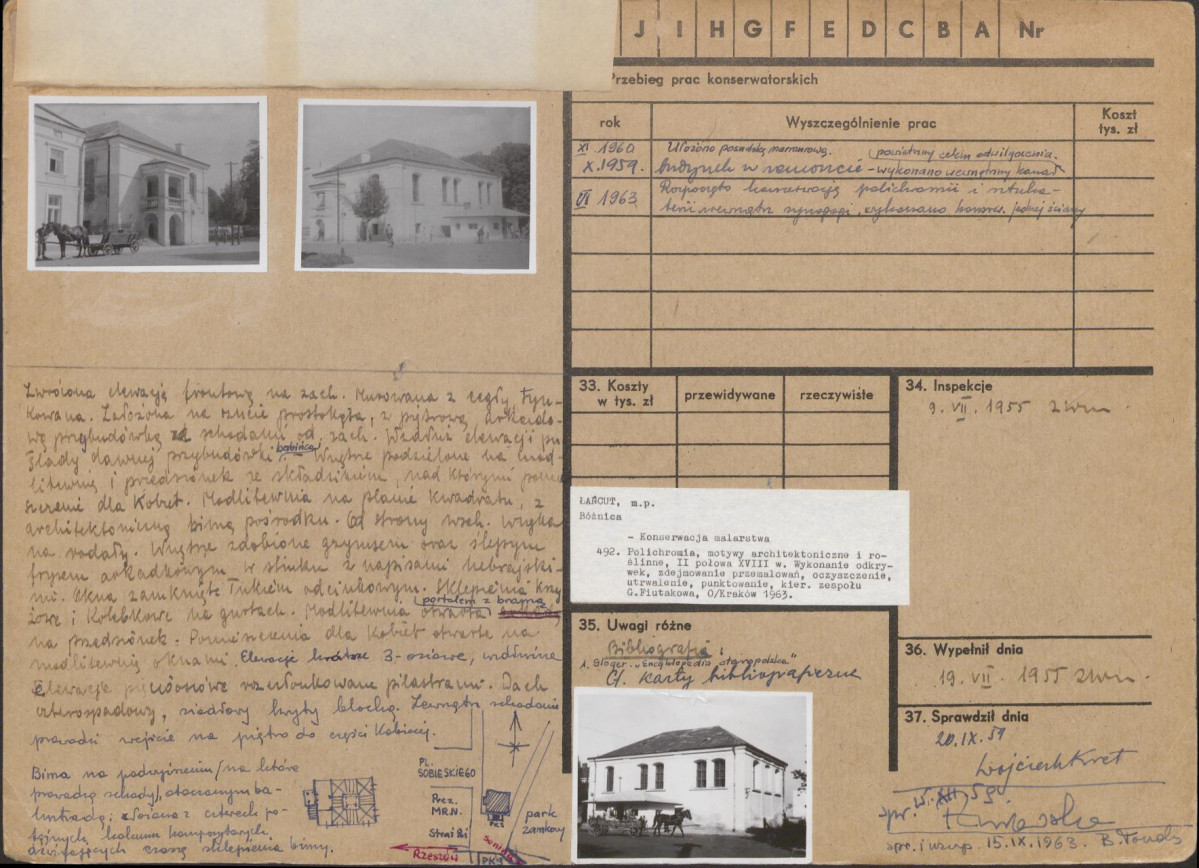 J I H G F E D C B A Nr
Przebieg prac konserwatorskich
rok
Wyszczególnienie prac
Koszt
tys. zł
XI 1960 Ułożono posadzkę marmurową.
powietrzny celem odwilgocenia.
X.1959. budynek w remoncie - wykonano wewnętrzny kanał
VI 1963 Rozpoczęto konserwację polichromii i sztuka-
terii wewnątrz synagogi, wykonano konserw. jednej ściany
Zwrócona elewacją frontową na zach. Murowana z cegły tyn-
kowana. Założona na rzucie prostokąta, z piętrową arkado-
wą przybudówką ze schodami od zach. Wzdłuż elewacji pn
ślady dawnej przybudówki babińca. Wnętrze podzielone na mod-
litewnię i przedsionek ze składzikiem, nad którymi pomie
szczenie dla kobiet. Modlitewnia na planie kwadratu, z
architektoniczną bimą pośrodku. Od strony wsch. wnęka
na rodały. Wnętrze zdobione gzymsem oraz ślepym
fryzem arkadkowym w stiuku z napisami hebrajski-
mi. Okna zamknięte łukiem odcinkowym. Sklepienia krzy
żowe i kolebkowe na gurtach. Modlitewnia otwarta portalem z bramą
na przedsionek. Pomieszczenia dla kobiet otwarte na
modlitewnię oknami. Elewacje krótsze 3-osiowe, wzdłużne
elewacje pięcioosiowe rozczłonkowane pilastrami. Dach
czterospadowy, siodłowy kryty blachą. Zewnątrz schodami
prowadzi wejście na piętro do części kobiecej.
Bima na podwyższeniu /na które
prowadzą schody/, otoczonym ba-
lustradą; złożona z czterech po-
tężnych kolumn kompozytowych,
dźwigających czaszę sklepienia bimy.
PL.
SOBIESKIEGO
Prez.
MRN.
park
zamkowy
RZESZÓW
PKS
33. Koszty
w tys. zł
przewidywane
rzeczywiste
ŁAŃCUT, m.p.
Bóżnica
- Konserwacja malarstwa
492. Polichromia, motywy architektoniczne i ro-
ślinne, II połowa XVIII w. Wykonanie odkry-
wek, zdejmowanie przemalowań, oczyszczenie,
utrwalenie, punktowanie, kier. zespołu
G.Fiutakowa, O/Kraków 1963.
35. Uwagi różne
Bibliografia:
1. Gloger. "Encyklopedia staropolska"
Cf. karty bibliograficzne
34. Inspekcje
9. VII. 1955
36. Wypełnił dnia
19. VII. 1955
37. Sprawdził dnia
20.IX.59
Wojciech Kret
spr. i uzup. 15.IX.1963.